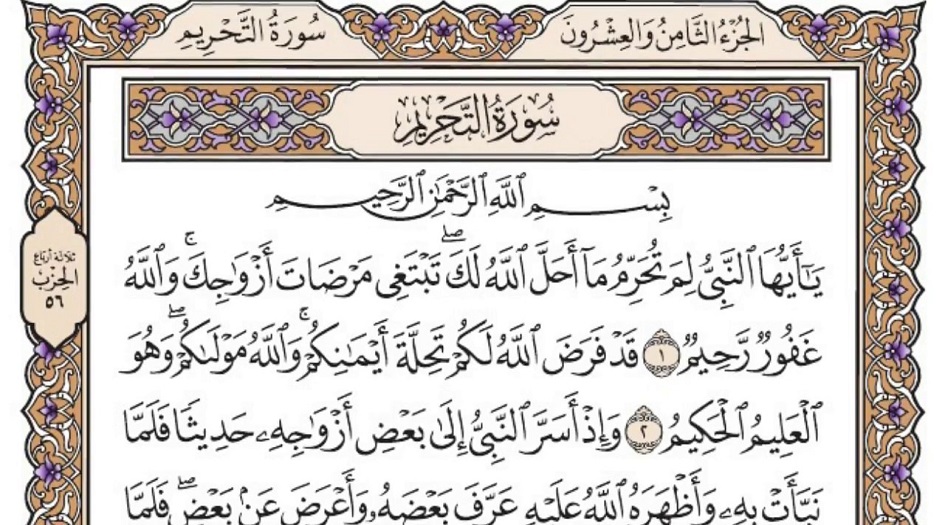 سُورَةُ التَّحْرِيمِ
الجُزْءُ الثَّامِنُ وَالعِشْرُونَ
سُورَةُ التَّحْرِيمِ
بِسْمِ ٱللَّهِ ٱلرَّحْمَٰنِ ٱلرَّحِيمِ
يَٰٓأَيُّهَا ٱلنَّبِىُّ لِمَ تُحَرِّمُ مَآ أَحَلَّ ٱللَّهُ لَكَۖ تَبْتَغِى مَرْضَاتَ أَزْوَٰجِكَۚ وَٱللَّهُ
غَفُورٌ رَّحِيمٌ ١ قَدْ فَرَضَ ٱللَّهُ لَكُمْ تَحِلَّةَ أَيْمَٰنِكُمْۚ وَٱللَّهُ مَوْلَىٰكُمْۖ وَهُوَ
ٱلْعَلِيمُ ٱلْحَكِيمُ ٢ وَإِذْ أَسَرَّ ٱلنَّبِىُّ إِلَىٰ بَعْضِ أَزْوَٰجِهِۦ حَدِيثًا فَلَمَّا
نَبَّأَتْ بِهِۦ وَأَظْهَرَهُ ٱللَّهُ عَلَيْهِ عَرَّفَ بَعْضَهُۥ وَأَعْرَضَ عَنۢ بَعْضٍۖ فَلَمَّا
ثلاثة أرباع
الحِزْب
٥٦